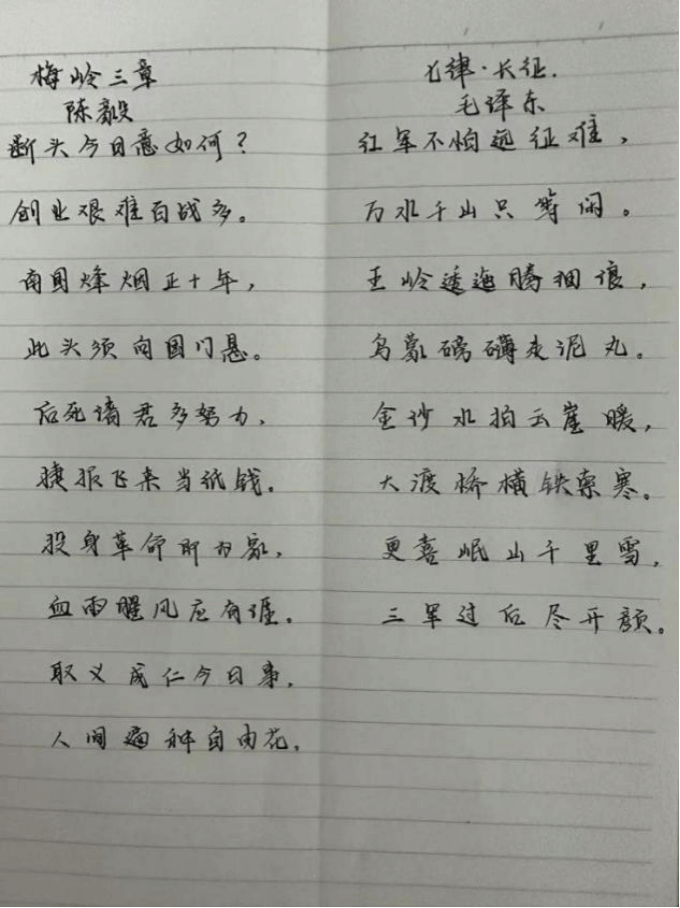 梅岭三章
陈毅
断头今日意如何？
创业艰难百战多。
南国烽烟正十年，
此头须向国门悬。
后死诸君多努力，
捷报飞来当纸钱。
投身革命即为家，
血雨腥风应有涯。
取义成仁今日事，
人间遍种自由花，
七律·长征.
毛泽东
红军不怕远征难，
万水千山只等闲。
王岭逶迤腾细浪，
乌蒙磅礴走泥丸。
金沙水拍云崖暖，
大渡桥横铁索寒。
更喜岷山千里雪，
三军过后尽开颜。